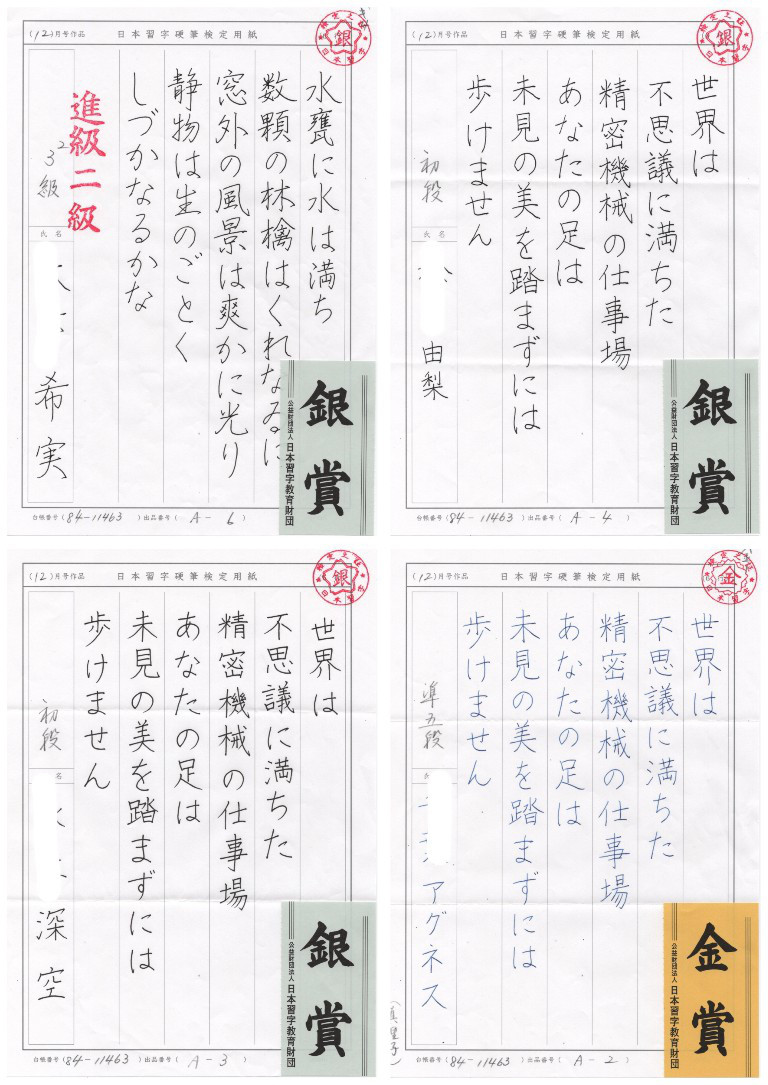 (12)月号作品 日本習字硬筆検定用紙
銀
日本習字
水甕に水は満ち
数顆の林檎はくれなゐに
窓外の風景は爽かに光り
静物は生のごとく
しづかなるかな
進級二級
3 2
級
氏名
希実
銀賞
公益財団法人 日本習字教育財団
台帳番号(84-11463 )出品番号( A-6 )
(12)月号作品 日本習字硬筆検定用紙
銀
日本習字
世界は
不思議に満ちた
精密機械の仕事場
あなたの足は
未見の美を踏まずには
歩けません
初段
氏名
由梨
銀賞
公益財団法人 日本習字教育財団
台帳番号(84-11463 )出品番号( A-4 )
(12)月号作品 日本習字硬筆検定用紙
銀
日本習字
世界は
不思議に満ちた
精密機械の仕事場
あなたの足は
未見の美を踏まずには
歩けません
初段
名
深空
銀賞
公益財団法人 日本習字教育財団
台帳番号(84-11463 )出品番号( A-3 )
(12)月号作品 日本習字硬筆検定用紙
金
日本習字
世界は
不思議に満ちた
精密機械の仕事場
あなたの足は
未見の美を踏まずには
歩けません
準五段
アグネス
金賞
公益財団法人 日本習字教育財団
台帳番号(84-11463 )出品番号( A-2 )